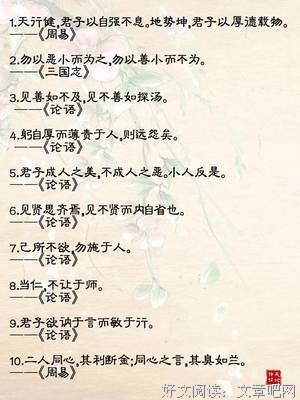 1.天行健,君子以自强不息。地势坤,君子以厚德载物。
——《周易》
2.勿以恶小而为之,勿以善小而不为。
——《三国志》
3.见善如不及,见不善如探汤。
——《论语》
4.躬自厚而薄责于人,则远怨矣。
——《论语》
5.君子成人之美,不成人之恶。小人反是。
——《论语》
6.见贤思齐焉,见不贤而内自省也。
——《论语》
7.己所不欲,勿施于人。
——《论语》
8.当仁,不让于师。
——《论语》
9.君子欲讷于言而敏于行。
——《论语》
10.二人同心,其利断金;同心之言,其臭如兰。
——《周易》
好文阅读:文章吧网